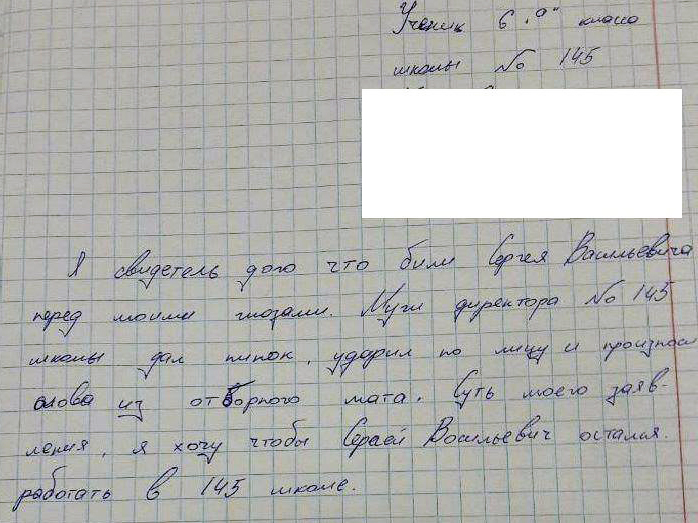 Ученик 6 "а" класса
школы № 145
Я свидетель дого что били Сергея Васильевича
перед моими глазами. Муги директора № 145
школы дал пинок, ударил по лицу и произнош
слова из отборного мата. Суть моего заяв-
ления, я хочу чтобы Сергей Васильевич остался.
работать в 145 школе.